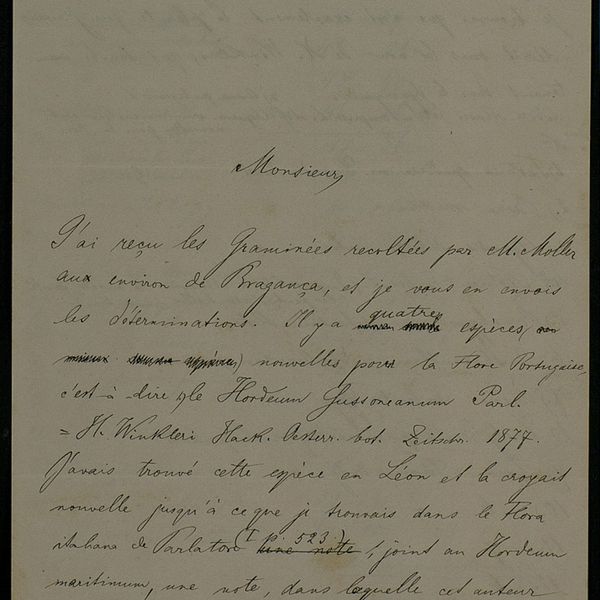 Monsieur,
J'ai reçu les Graminées recoltées par M. Moller
aux environ de Bragança, et je vous en envois
les déterminations. Il y a quatre espèces
nouvelles pour la Flore Portugaise,
c'est-à dire le Hordeum Gussoneanum Parl.
= H. Winkleri Hack. Oesterr. bot. Zeitschr. 1877.
J'avais trouvé cette espèce en Léon et la croyait
nouvelle jusqu'à ce que je trouvais dans le Flora
italiana de Parlatore (I p. 523) une note, joint au Hordeum
maritimum, une note, dans laquelle cet auteur